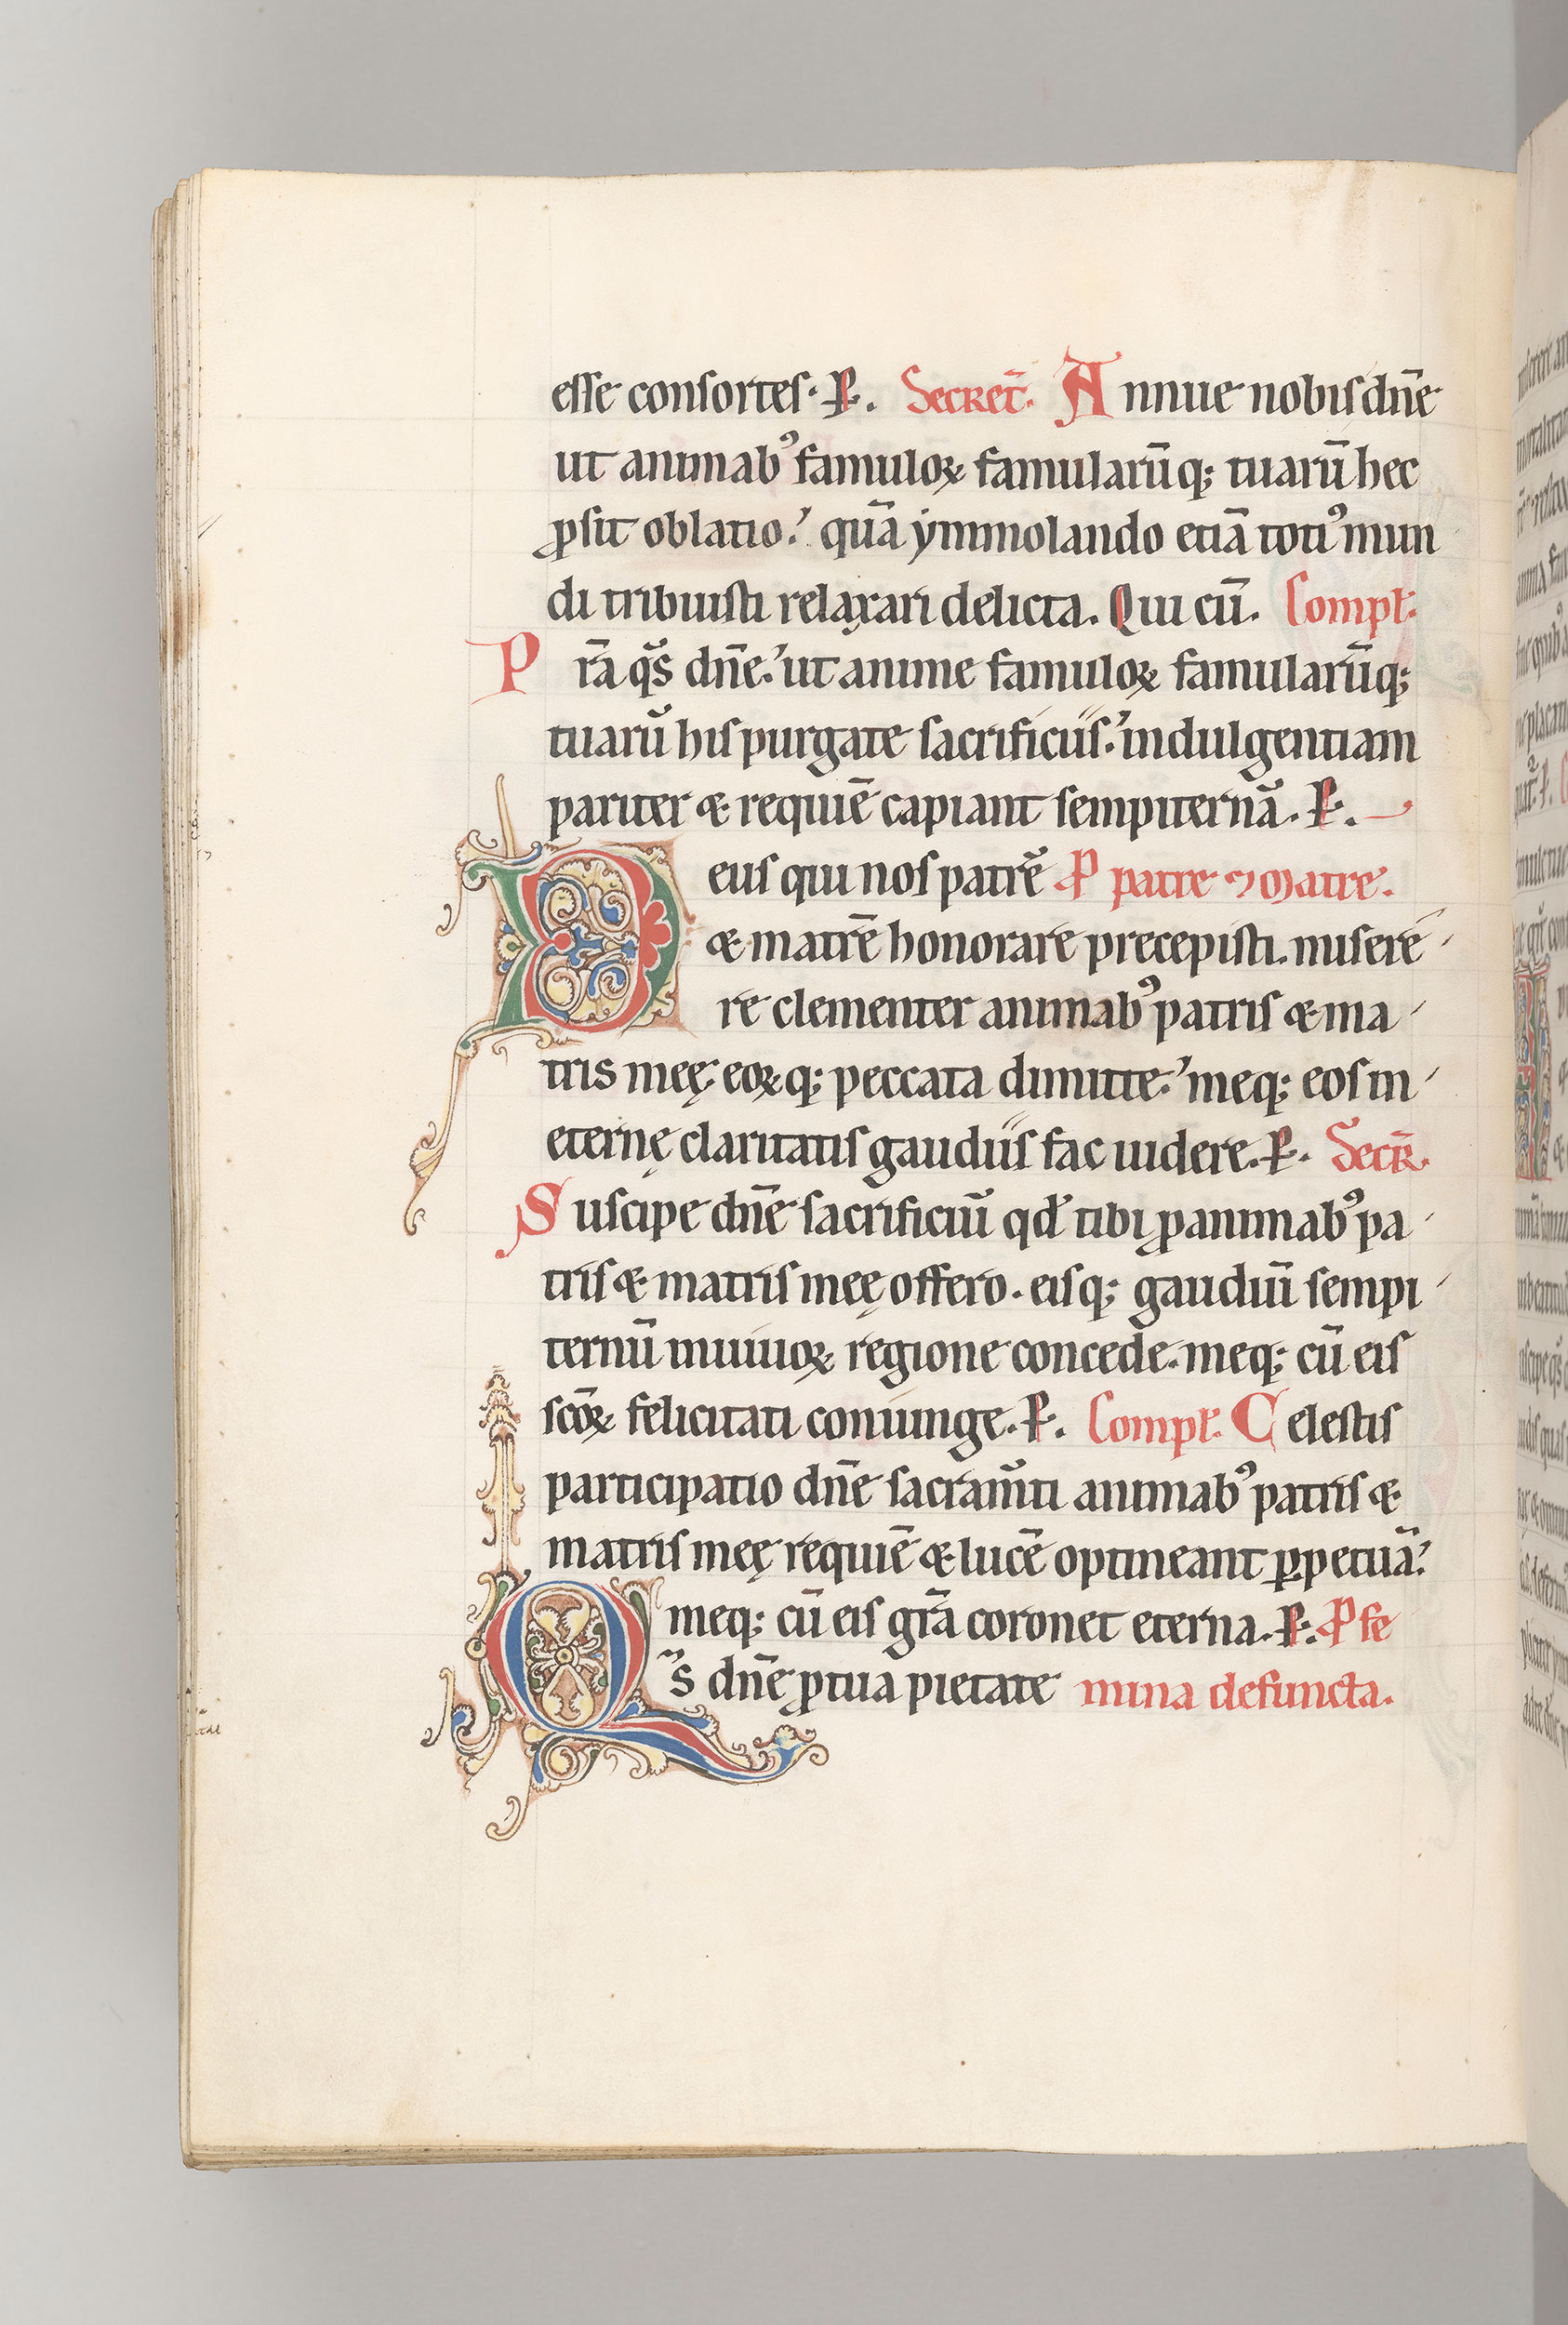 esse consortes. P. Secret̄. Annue nobis dn̄e
ut animabꝰ famuloꝝ famularūq; tuarū hec
ꝓsit oblatio. quā ymmolando etiā totiꝰ mun
di tribuisti relaxari delicta. Qui cū. Compl̄.
Prā qs̄ dn̄e. ut anime famuloꝝ famularūq;
tuarū his purgate sacrificiis. indulgentiam
pariter & requiē capiant sempiternā. P.
Deus qui nos patrē P patre ⁊ Matre.
& matrē honorare precepisti. miserē
re clementer animabꝰ patris & ma
tris meę. eoꝝq; peccata dimitte. meq; eos in
eternę claritatis gaudiis fac uidere. P. Secr̄.
Suscipe dn̄e sacrificiū qd̄ tibi ꝓ animabꝰ pa
tris & matris meę offero. eisq; gaudiū sempi
ternū in uiuoꝝ regione concede. meq; cū eis
sc̄oꝝ felicitati coniunge. P. Compl̄. Celestis
participatio dn̄e sacram̄ti animabꝰ patris &
matris meę requiē & lucē optineant ꝑpetuā.
meq; cū eis grā coronet eterna. P. P fe
Qs̄ dn̄e ꝓ tua pietate mina defuncta.